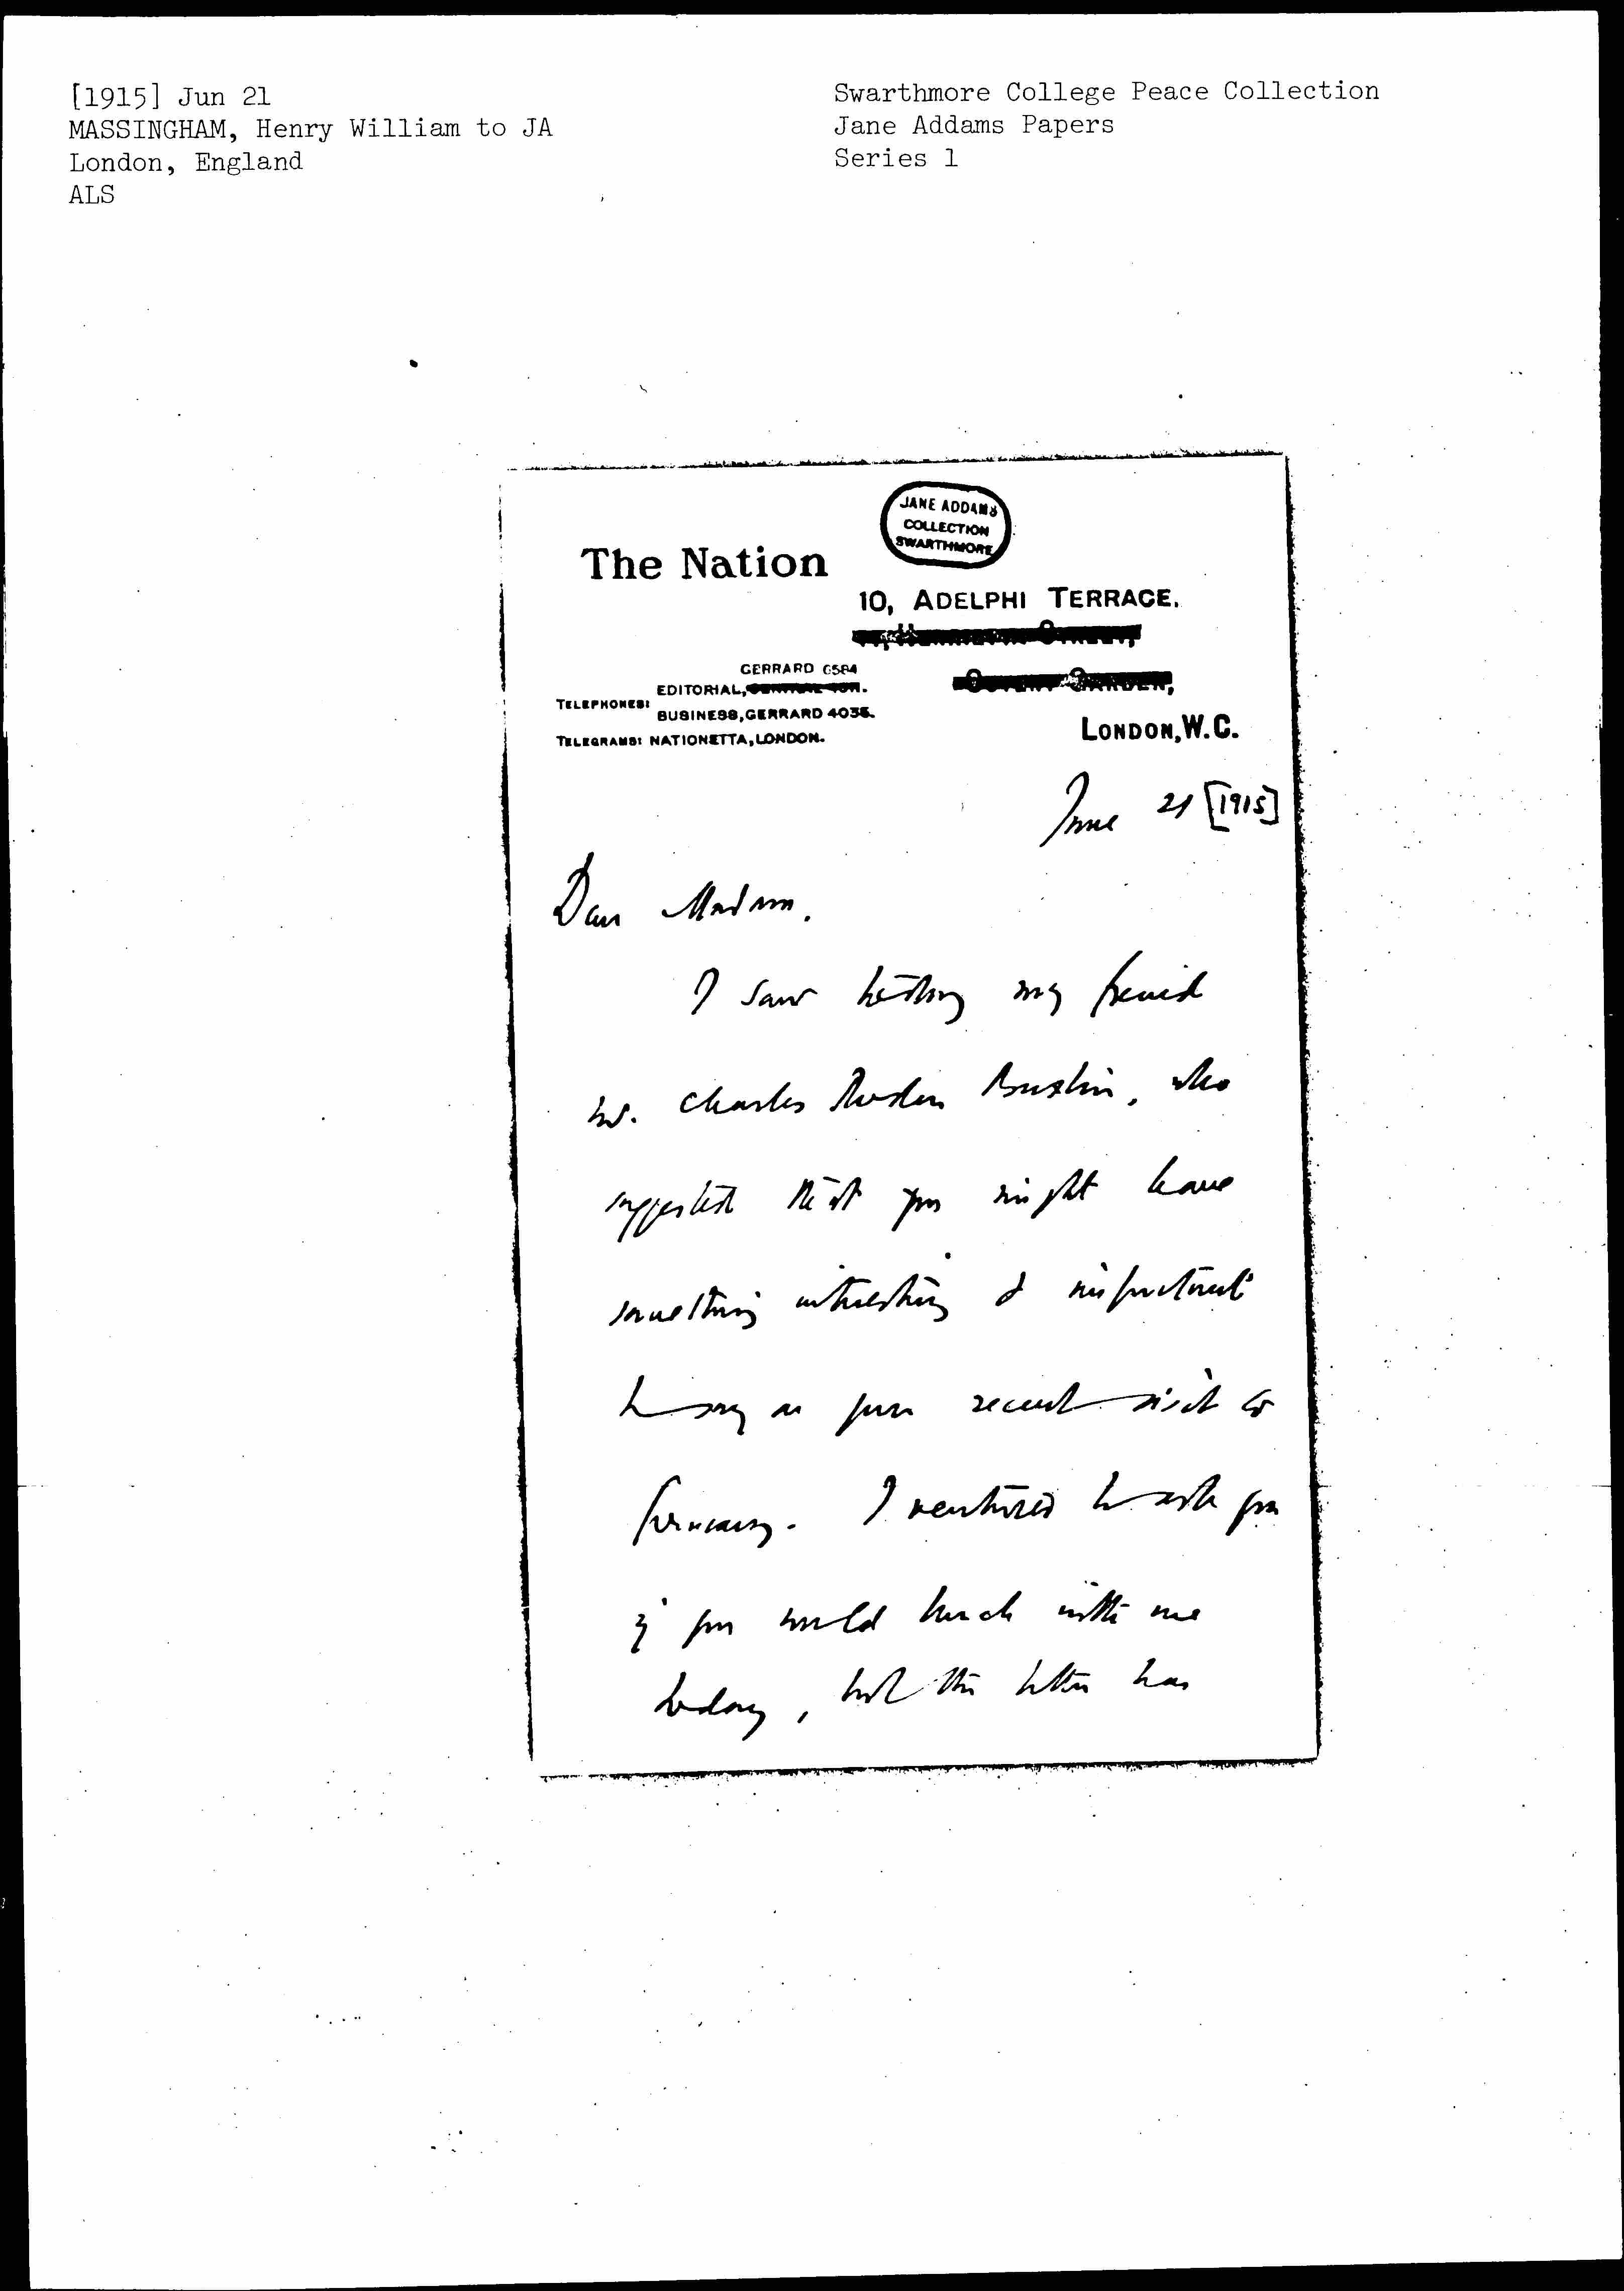 [1915] Jun 21
MASSINGHAM, Henry William to JA
London, England
ALS
Swarthmore College Peace Collection
Jane Addams Papers
Series 1
JANE ADDAMS
COLLECTION
SWARTHMORE
The Nation
10, ADELPHI TERRACE.
GERRARD 6584
EDITORIAL,
TELEPHONES:
BUSINESS, GERRARD 4035.
TELEGRAMS: NATIONETTA, LONDON.
LONDON, W.C.
June 21 [1915]
Dear Madam.
I saw my friend
Mr. Charles Roden Buxton, who
suggested that you might have
something interesting & important
to say on your recent visit to
Germany. I ventured to ask you
if you would lunch with me
today, but the letter has